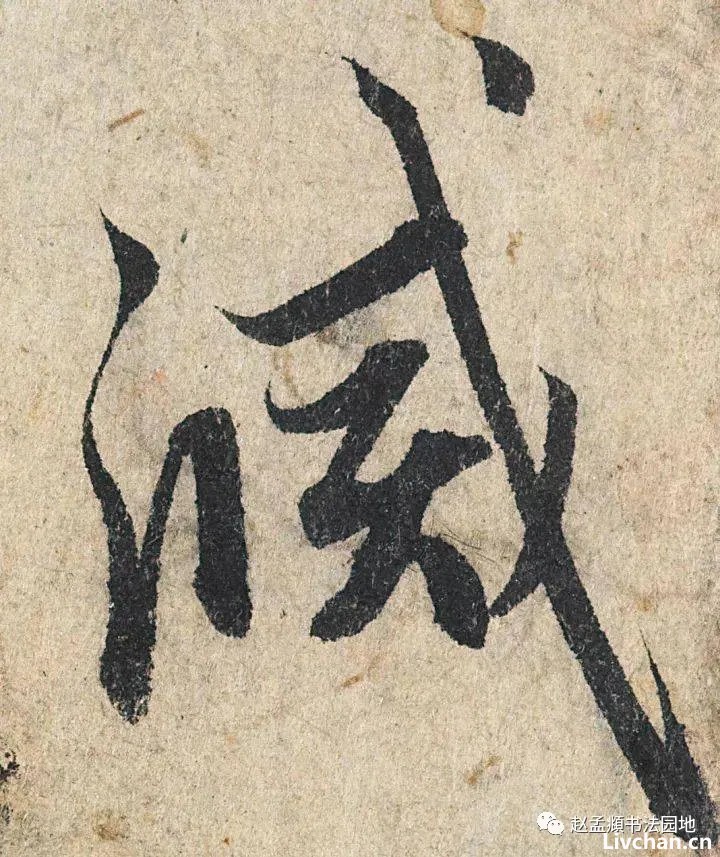 滅
赵孟頫书法园地
Livchan.cn